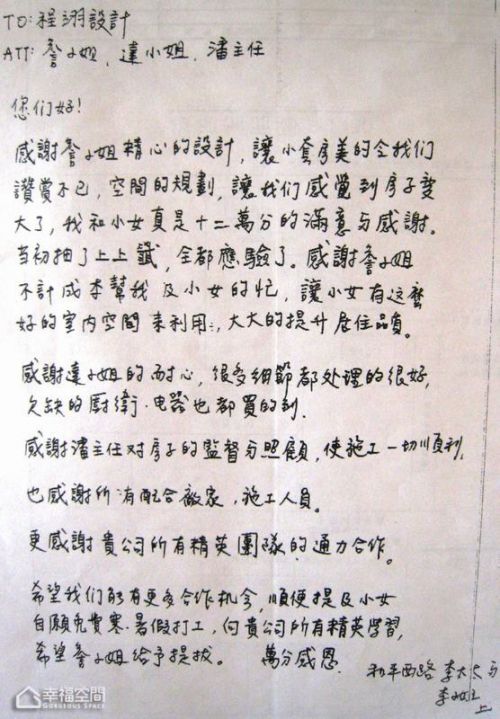 TO: 程翊設計
ATT: 詹小姐, 連小姐, 潘主任
您们好!
感謝詹小姐精心的設計, 讓小套房美的令我们
讚賞不已, 空間的規劃, 讓我们感覺到房子變
大了, 我和小女真是十二萬分的滿意与感謝。
当初抽了上上籤, 全都應驗了。感謝詹小姐
不計成本幫我及小女的忙, 讓小女有这麼
好的室內空間來利用, 大大的提升居住品質。
感謝連小姐的耐心, 很多細節都处理的很好,
欠缺的廚衛、电器也都買的到.
感謝潘主任对房子的監督与照顧, 使施工一切順利,
也感謝所有配合廠家, 施工人員。
更感謝貴公司所有精英團隊的通力合作。
希望我们能有更多合作机会, 順便提及小女
自願免費寒、暑假打工, 向貴公司所有精英學習,
希望詹小姐給予提拔。 萬分感恩
和平西路 李太太与
李小姐
上
幸福空間
GORGEOUS SPACE